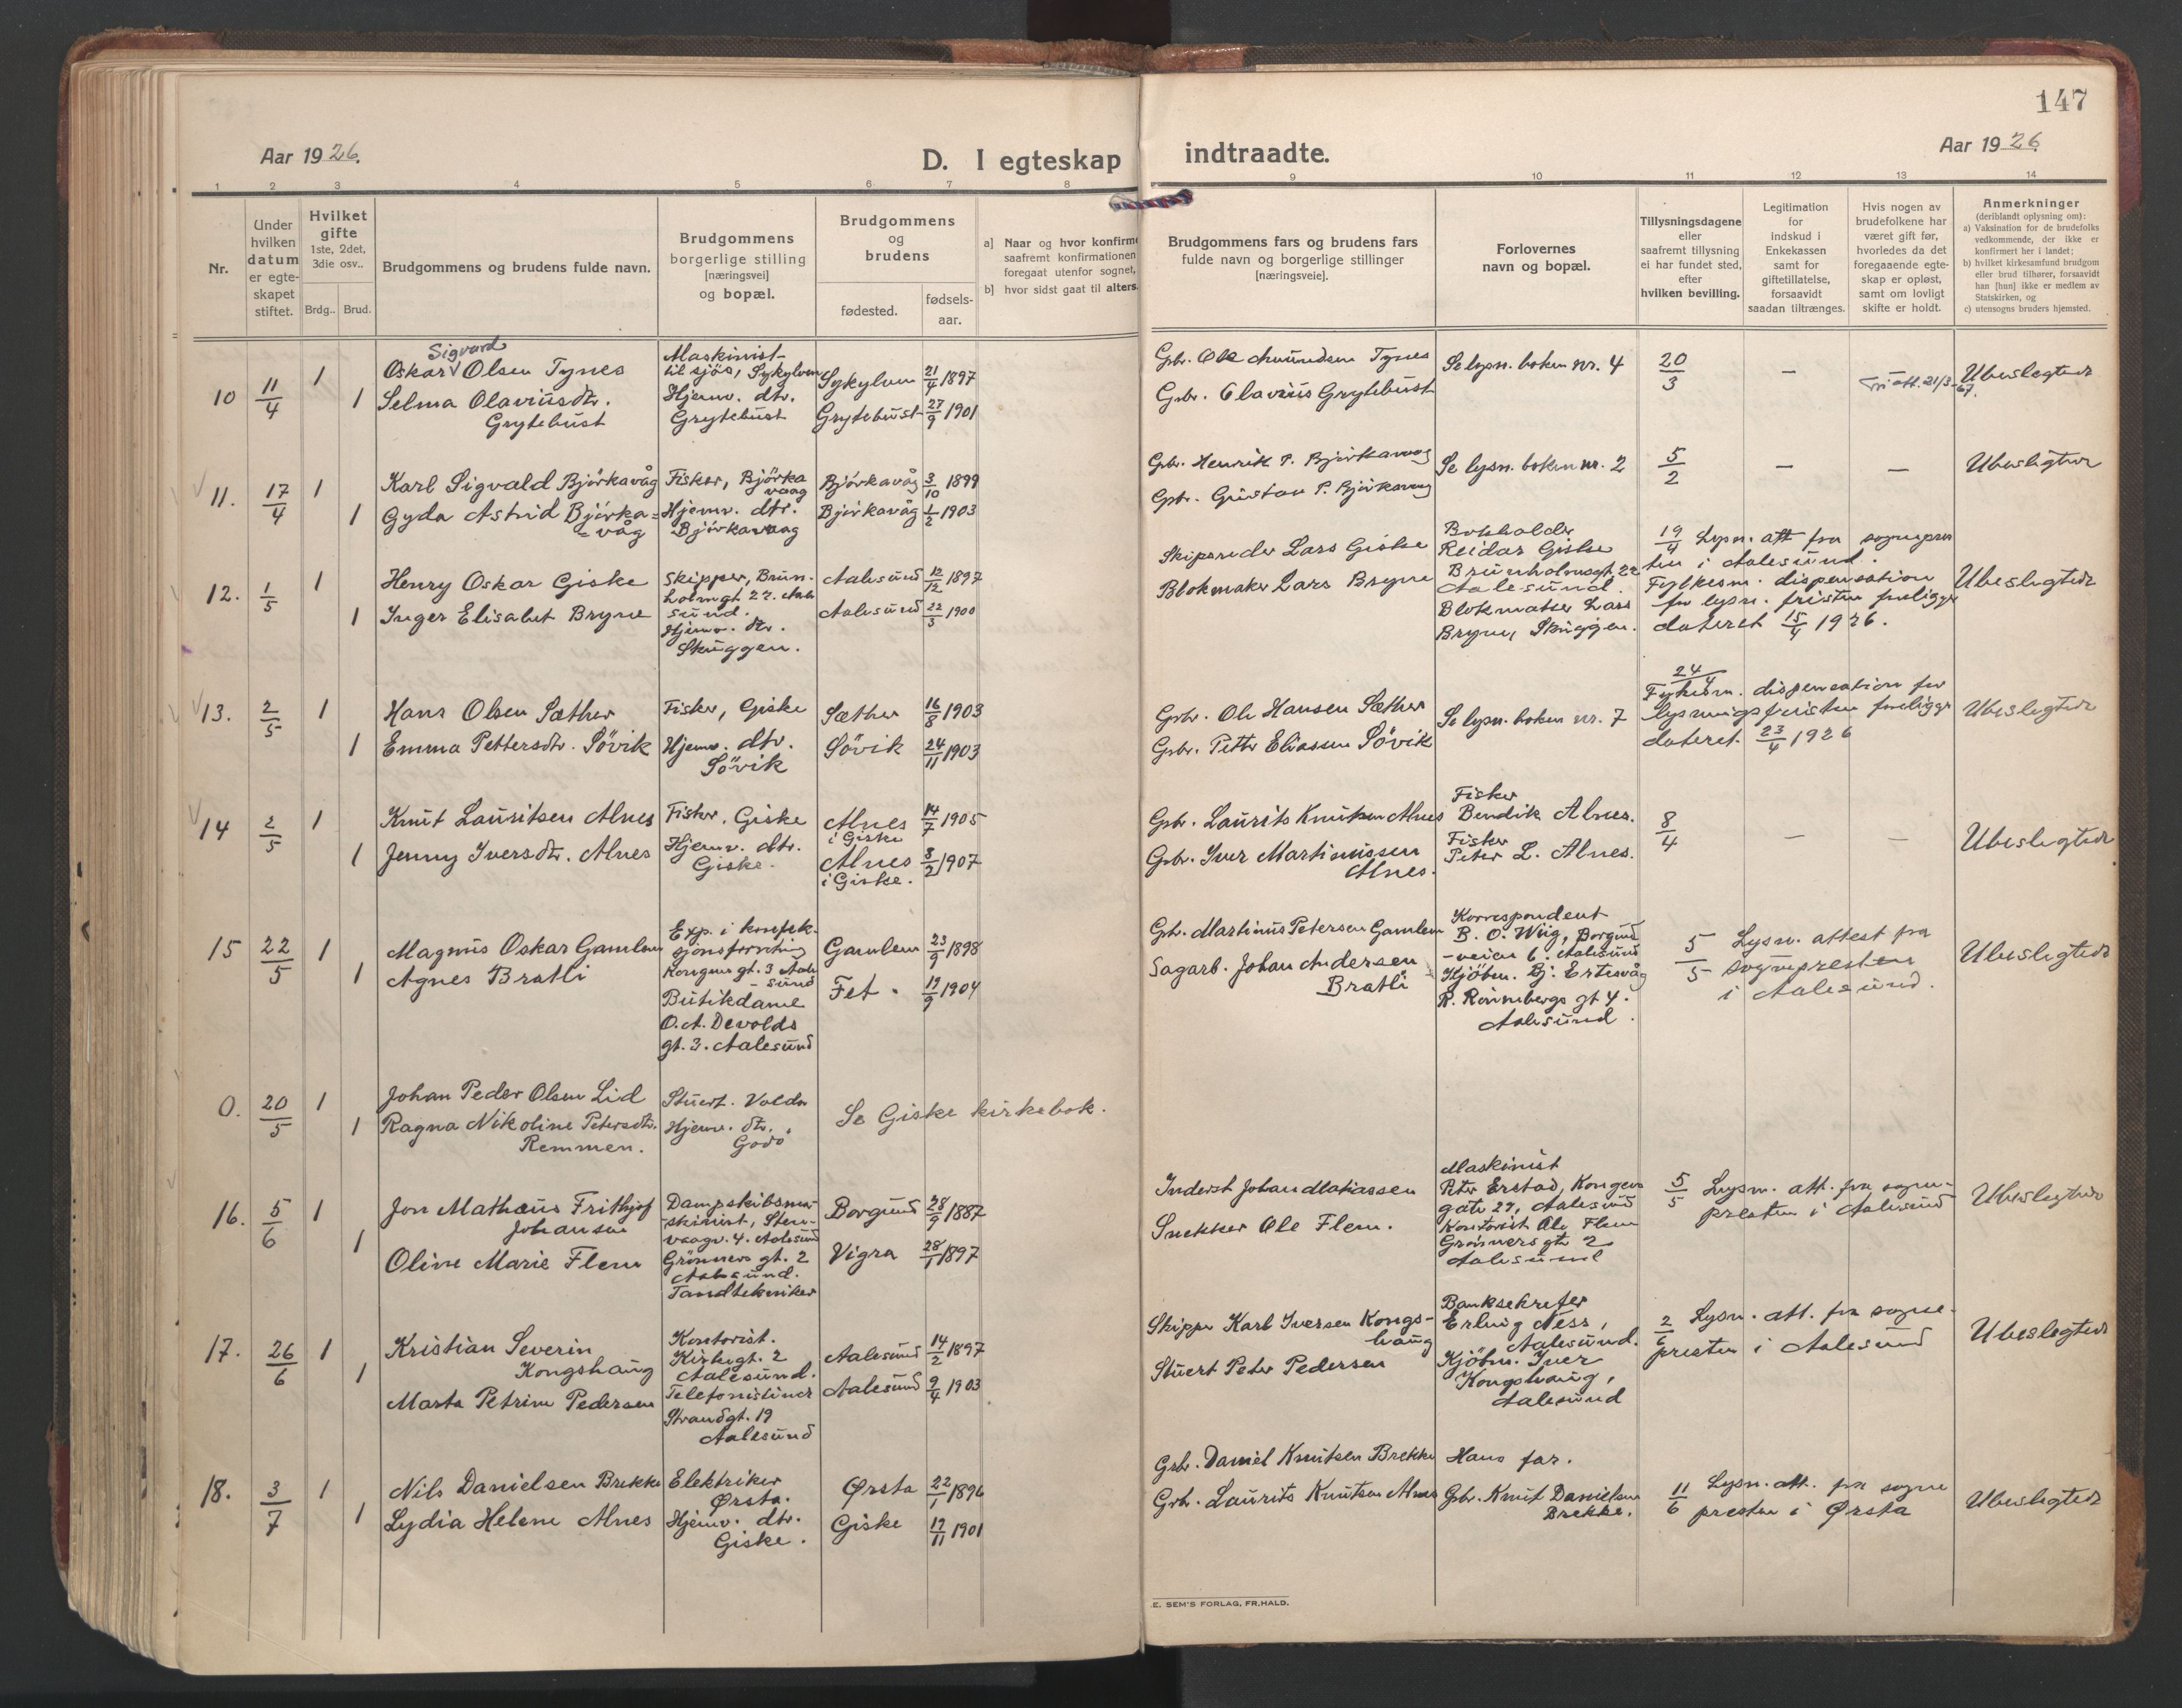 147
Aar 1926.
D. I egteskap
indtraadte.
Aar 1926
1 2 3 4 5 6 7 8
9 10 11 12 13 14
Nr.
Under hvilken datum er egte-skapet stiftet.
Hvilket gifte 1ste, 2det, 3die osv..
Brdg.. Brud.
Brudgommens og brudens fulde navn.
Brudgommens borgerlige stilling [næringsvei] og bopæl.
Brudgommens og brudens
fødested.
fødsels-aar.
a] Naar og hvor konfirme
saafremt konfirmationen
foregaat utenfor sognet,
b] hvor sidst gaat til alters.
Brudgommens fars og brudens fars
fulde navn og borgerlige stillinger
[næringsveie].
Forlovernes
navn og bopæl.
Tillysningsdagene
eller
saafremt tillysning
ei har fundet sted,
efter
hvilken bevilling.
Legitimation
for
indskud i
Enkekassen
samt for
giftetillatelse,
forsaavidt
saadan tiltrænges.
Hvis nogen av
brudefolkene har
været gift før,
hvorledes da det
foregaaende egte-
skap er opløst,
samt om lovligt
skifte er holdt.
Anmerkninger
(deriblandt oplysning om):
a) Vaksination for de brudefolks
vedkommende, der ikke er
konfirmert her i landet;
b) hvilket kirkesamfund brudgom
eller brud tilhører, forsaavidt
han [hun] ikke er medlem av
Statskirken, og
c) utensogns bruders hjemsted.
10 11/4 1 1
Sigvard
Oskar V Olsen Tynes
Selma Olaviusdtr.
Grytebust
Maskinist
til sjös, Sykylven
Hjemv. dtr.
Grytebust
Sykylven 21/4 1897
Grytebust 27/9 1901
Gbr. Ole Amundsen Tynes
Gbr. Olavius Grytebust
Se lysn. boken nr. 4
20/3
—
att. 21/3-67.
Ubeslegtede
11. 17/4 1 1
Karl Sigvald Björkavåg
Gyda Astrid Björka=
=våg
Fisker, Björka
vaag
Hjemv. dtr.
Björkavaag
Björkavåg 3/10 1899
Björkavåg 1/2 1903
Gbr. Henrik P. Björkavaag
Gbr. Gustav P. Björkavaag
Se lysn. boken nr. 2
5/2
— —
Ubeslegtede
12. 1/5 1 1
Henry Oskar Giske
Inger Elisabet Bryne
Skipper, Brun-
holmgt 22. Aale
sund.
Hjemv. dtr.
Skuggen.
Aalesund 12/12 1897
Aalesund 22/3 1900
Skipsreder Lars Giske
Blokmaker Lars Bryne
Bokholder
Reidar Giske
Brunholmgt 22
Aalesund.
Blokmaker Lars
Bryne, Skuggen.
19/4 Lysn. att fra sognepres
ten i Aalesund.
Fylkesm. dispensation
for lysn. fristen foreligger
dateret 15/4 1926.
Ubeslegtede
13. 2/5 1 1
Hans Olsen Sæther
Emma Pettersdtr. Sövik
Fisker, Giske
Hjemv. dtr.
Sövik
Sæther 16/8 1903
Sövik 24/11 1903
Gbr. Ole Hansen Sæther
Gbr. Petter Eliassen Sövik
Se lysn. boken nr. 7
24/4
Fylkesm. dispensation for
lysningsfristen foreligger
dateret 23/4 1926
Ubeslegtede
14 2/5 1 1
Knut Lauritsen Alnes
Jenny Iversdtr. Alnes
Fisker, Giske
Hjemv. dtr.
Giske.
Alnes
i Giske 14/7 1905
Alnes
i Giske. 8/2 1907
Gbr. Laurits Knutsen Alnes
Gbr. Iver Martinussen
Alnes.
Fisker
Bendik Alnes.
Fisker
Peter L. Alnes.
8/4
— —
Ubeslegtede
15 22/5 1 1
Magnus Oskar Gamlem
Agnes Bratli
Exp. i konfek-
sjonsforretning
Kongens gt. 3 Aale
- sund
Butikdame
O. A. Devolds
gt. 3. Aalesund
Gamlem 23/9 1898
Fet. 19/9 1904
Gbr. Martinus Petersen Gamlem
Sagarb. Johan Andersen
Bratli
Korrespondent
B. O. Wiig, Borgund
-veien 6. Aalesund
Kjöbm. Bj. Ertesvåg
R. Rönnebergs gt 4.
Aalesund.
5/5 Lysn. attest fra
sognepresten
i Aalesund.
Ubeslegtede
0. 20/5 1 1
Johan Peder Olsen Lid
Ragna Nikoline Petersdtr.
Remmen.
Stuert. Volda
Hjemv. dtr.
Godö
Se Giske kirkebok.
16. 5/6 1 1
Jon Mathæus Frithjof
Johansen
Oline Marie Flem
Dampskibsma-
skinist, Sten-
vaagv. 4. Aalesund
Grönners gt. 2
Aalesund.
Tandtekniker
Borgund 28/9 1887
Vigra 28/1 1897
Inderst Johan Matiassen
Snekker Ole Flem.
Maskinist
Peter Erstad, Kongens
gate 27, Aalesund
Kontorist Ole Flem
Grönners gt 2
Aalesund
5/5 Lysn. att. fra sogne-
presten i Aalesund
Ubeslegtede
17. 26/6 1 1
Kristian Severin
Kongshaug
Marta Petrine Pedersen
Kontorist.
Kirkegt. 2
Aalesund.
Telefonistinde
Strandgt. 19
Aalesund
Aalesund 14/2 1897
Aalesund 9/4 1903
Skipper Karl Iversen Kongs-
haug
Stuert Peter Pedersen
Banksekretær
Erling Ness,
Aalesund.
Kjöbm. Iver
Kongshaug,
Aalesund
2/6 Lysn. att. fra sogne-
presten i Aalesund
Ubeslegtede
18. 3/7 1 1
Nils Danielsen Brekke
Lydia Helene Alnes
Elektriker
Ørsta.
Hjemv. dtr.
Giske.
Ørsta 22/1 1896
Giske 19/11 1901
Gbr. Daniel Knutsen Brekke
Gbr. Laurits Knutsen Alnes
Hans far.
Gbr. Knut Danielsen
Brekke.
11/6 Lysn. att. fra sogne
presten i Ørsta
Ubeslegtede
E. SEM'S FORLAG, FR.HALD.